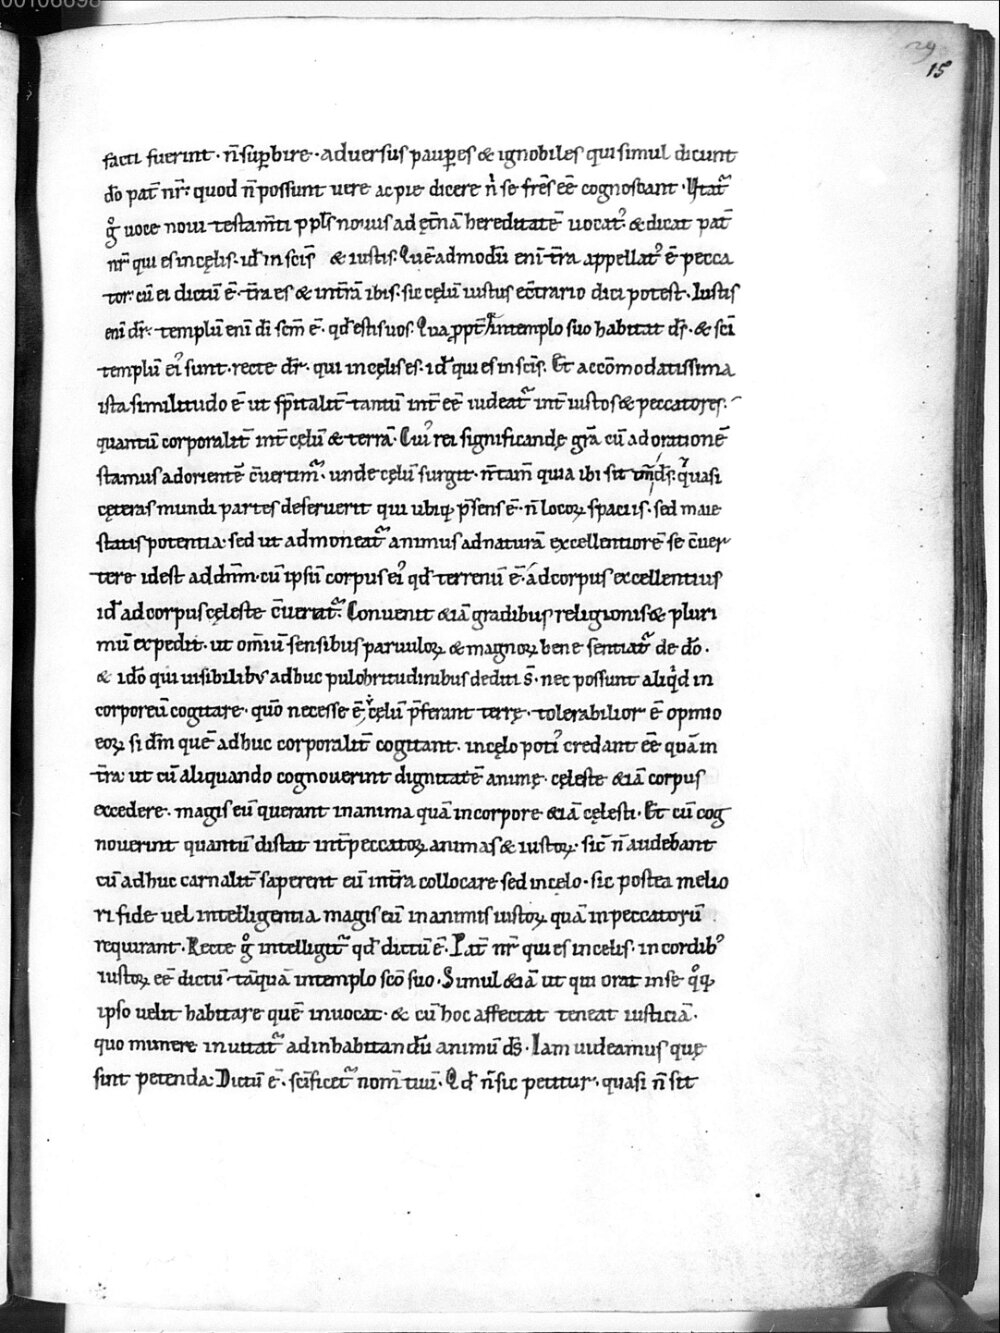 00106698
29
15
facti fuerint · n̄ suꝑbire · adversus pauꝑes & ignobiles qui simul dicunt
dō pat̄ nr̄: quod n̄ possunt vere ac pie dicere n̓ se fr̄es eē cognoscant · Utat᷑
g̊ voce novi testam̄ti ppl̄s novus ad et̄nā hereditatē vocat᷒ · & dicat pat̄
nr̄ qui es in cęlis · id̄ in scīs & iustis · Quē admodū eni t̄ra appellat᷒ ē pecca
tor · cū ei dictū ē · t̄ra es & int̄rā ibis · sic cęlū iustus ec̄trario dici potest · Iustis
eni dr̄ · templū eni dī scm̄ ē · qd̄ estis vos · Qua ꝓpt̄ in templo suo habitat ds̄ · & scī
templū ei᷒ sunt · recte dr̄ · qui in cęlis es · id̄ qui es in scīs · Et accōmodatissima
ista similitudo ē ut sp̄italit̄ tantū int̄ eē videat᷑ int̄ iustos & peccatores ·
quantū corporalit̄ int̄ cęlū & terrā · Cui᷒ rei significandę gr̄a cū ad orationē
stamus ad orientē c̄vertim᷑ · unde cęlū surgit · n̄ tam̄ quia ibi sit ds̄ · quasi
cęteras mundi partes deseruerit qui ubiqꝫ p̄sens ē · n̄ locoꝝ spaciis · sed maie
statis potentia · sed ut admoneat᷑ animus ad naturā excellentiorē se c̄ver
tere id est ad dn̄m · cū ipsū corpus ei᷒ qd̄ terrenū ē · ad corpus excellentius
id̄ ad corpus cęleste c̄vertat᷑ · Convenit &iā gradibus religionis & pluri
mū expedit · ut om̄iū sensibus parvuloꝝ & magnoꝝ bene sentiat᷑ de dō ·
& idō qui visibilibus adhuc pulchritudinibus dediti s̄ · nec possunt aliqͥd in
corporeū cogitare · quō necesse ē cęlū p̄ferant terrę · tolerabilior ē opinio
eoꝝ si dm̄ quē adhuc corporalit̄ cogitant · in cęlo poti᷒ credant eē quā in
t̄ra · ut cū aliquando cognoverint dignitatē animę · cęleste &iā corpus
excedere · magis eū querant in anima quā in corpore &iā cęlesti · Et cū cog
noverint quantū distat int̄ peccatoꝝ animas & iustoꝝ · sic̄ n̄ audebant
cū adhuc carnalit̄ saperent eū int̄ra collocare sed in cęlo · sic postea melio
ri fide vel intelligentia magis eū in animis iustoꝝ quā in peccatorū
requirant · Recte g̊ intelligit᷑ qd̄ dictū ē · Pat̄ nr̄ qui es in celis · in cordib᷒
iustoꝝ eē dictū tāquā in templo scō suo · Simul &iā ut qui orat in se qͦqꝫ
ipso velit habitare quē invocat · & cū hoc affectat teneat iusticiā ·
quo munere invitat᷑ ad inhabitandū animū ds̄ · Iam videamus quę
sint petenda · Dictū ē · scīficet᷑ nom̄ tuū · Qd̄ n̄ sic petitur · quasi n̄ sit